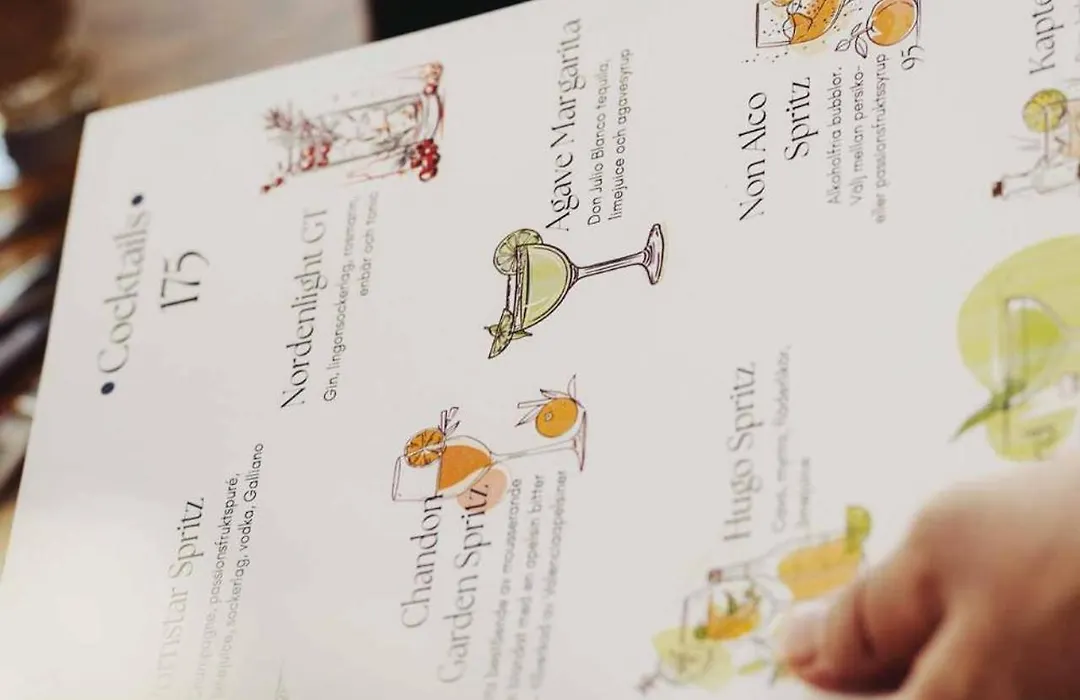 •Cocktails•
175
Nordenlight GT
Gin, lingonsockerlag, rosmarin,
enbär och tonic
Agave Margarita
Don Julio Blanco tequila,
limejuice och agavesyrup
Non Alco
Spritz
Alkoholfria bubblor.
Välj mellan persiko-
eller passionsfruktssyrup
95
Spritz
passionsfruktspuré,
sockerlag, vodka, Galliano
Chandon
Garden Spritz
bestående av mousserande
med en apelsin bitter
av Valenciaapelsiner
Hugo Spritz
Cava, mynta, fläderlikör,
limejuice